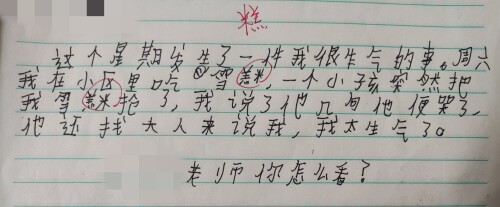 糕
这个星期发生了一件我很生气的事。周六
我在小区里吃雪羔米,一个小孩突然把
我雪羔米抢了,我说了他几句他便哭了,
他还找大人来说我,我太生气了。
老师你怎么看?